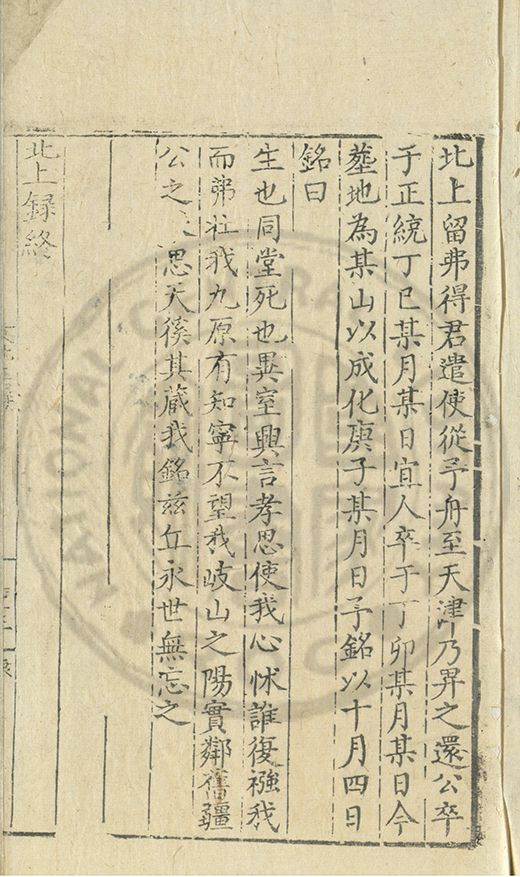 北上留弗得君遣使從予舟至天津乃畀之還公卒
于正統丁巳某月某日宜人卒于丁卯某月某日今
墓地為某山以成化庚子某月日予銘以十月四日
銘曰
生也同堂死也異室興言孝思使我心怵誰復襁我
而弗壯我九原有知寧不望我岐山之陽實鄰舊疆
公之思天徯其藏我銘兹丘永世無忘之
北上録終